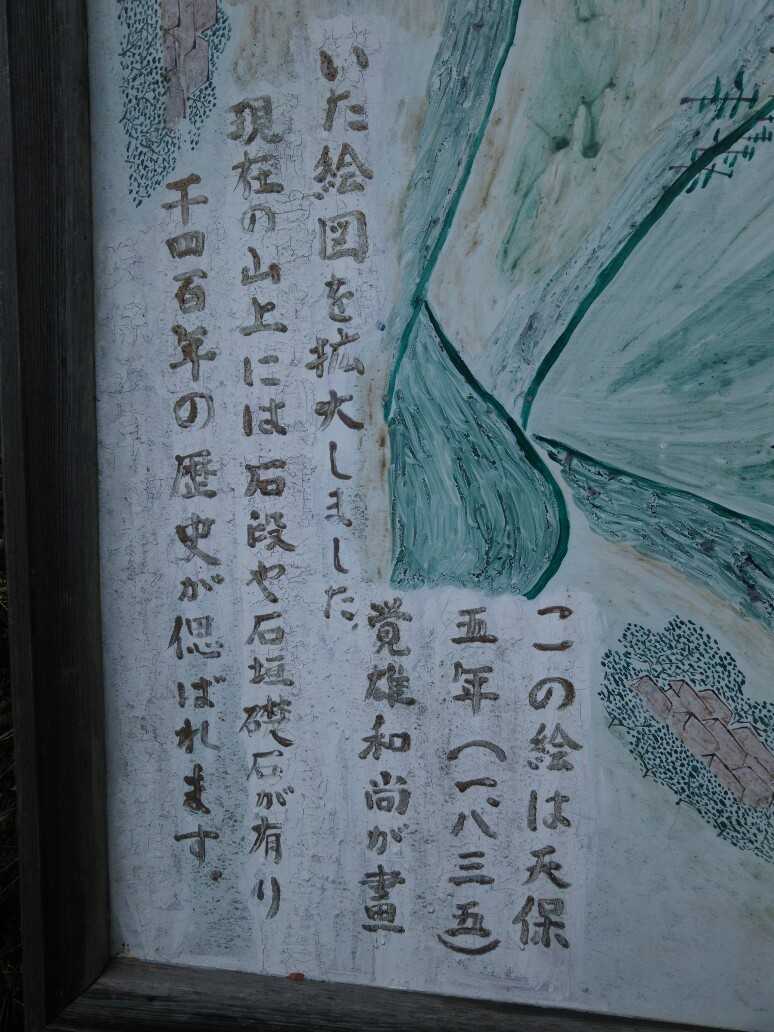 この絵は天保
五年(一八三五)
覚雄和尚が畫
いた絵図を拡大しました。
現在の山上には石段や石垣礎石が有り
千四百年の歴史が偲ばれます。